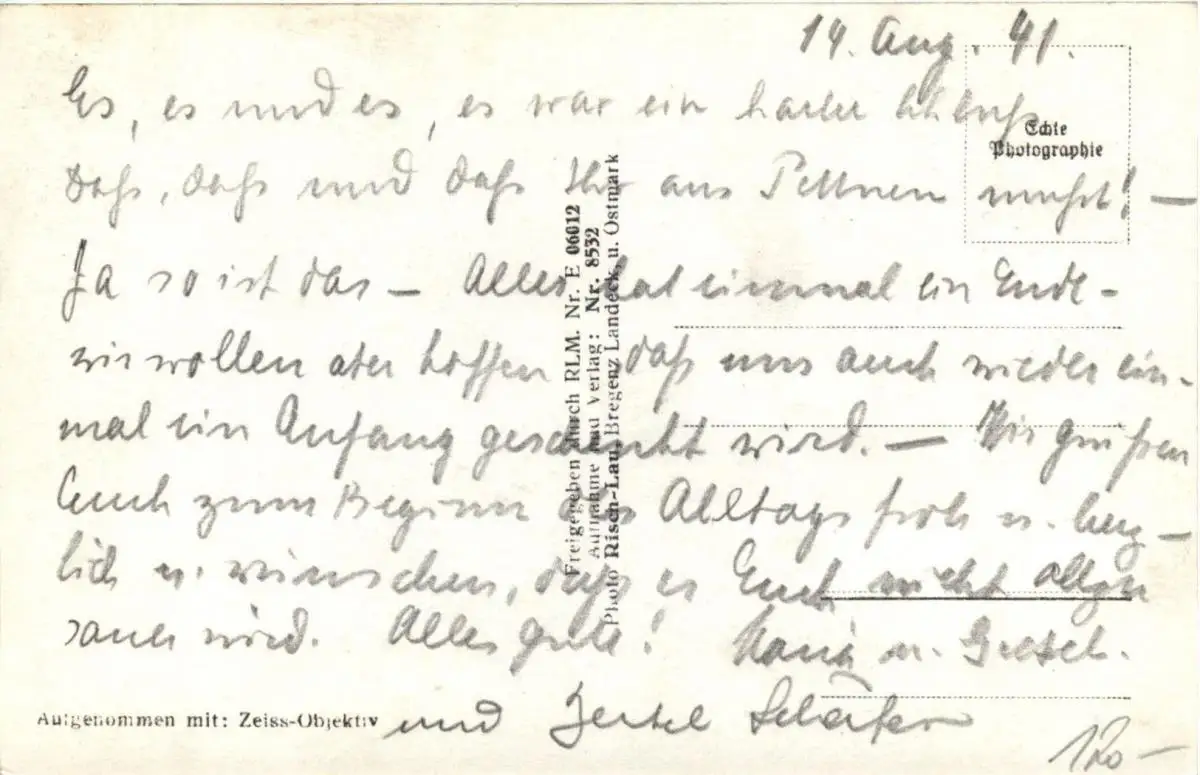 14. Aug. 41.
Es, es und es, es war ein harter Schluß
Dahs, dahs und dahs Ihr aus Pettneu muhst! —
Ja so ist das — Alles hat einmal ein Ende -
wir wollen aber hoffen daß uns auch wieder ein-
mal ein Anfang geschenkt wird. — Wir grüßen
Euch zum Beginn des Alltags froh u. herz-
lich u. wünschen, dahs es Euch nicht allzu
sauer wird. Alles gute! Maria u. Gretel.
und Schäfer
120 —
Echte
Photographie
Freigegeben durch RLM. Nr. E 06012
Aufnahme und Verlag: Nr. 8532
Photo Risch-Lau, Bregenz Landeck, u. Ostmark
Aufgenommen mit: Zeiss-Objektiv